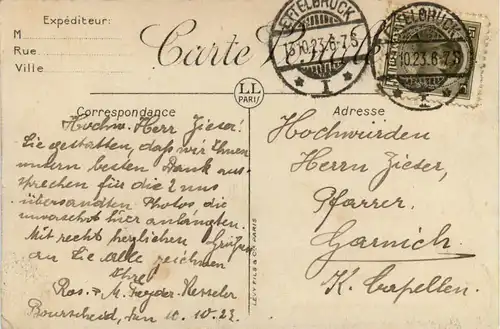 Expéditeur:
M
Rue
Ville
Carte Postale
ETTELBRUCK
13.10.23.6-7S
* 1 *
ETTELBRUCK
10.23.6-7S
* 1 *
LL
PARIS
Correspondance
Hochw. Herr Zieser!
Sie gestatten, daß wir Ihnen
unsern besten Dank aus-
sprechen für die 2 uns
übersandten Photos die
unversehrt hier anlangten.
Mit recht herzlichen Grüßen
an Sie alle zeichnen
Ihre
Ros. & M. Feyder-Kesseler
Bourscheid, den 10.10-23.
LEVY FILS & Cie PARIS
Adresse
Hochwürden
Herrn Zieser,
Pfarrer.
Garnich
K. Capellen.